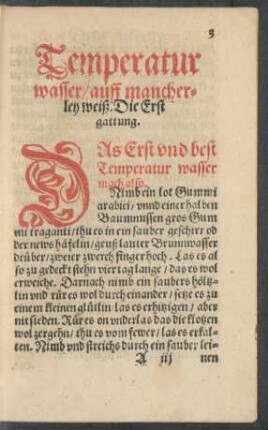 3
Temperatur
wasser/auff mancher-
ley weiß. Die Erst
gattung.
DAs Erst vnd best
Temperatur wasser
mach also.
Nimb ein lot Gummi
arabici/ vnnd einer halben
Baumnussen gros Gum
mi traganti/ thu es in ein sauber geschirr od
der news häfelin/ geuß lauter Brunnwasser
drüber/ zwener zwerch finger hoch. Las es al
so zu gedeckt stehn vier tag lange/ das es wol
erweiche. Darnach nimb ein saubers höltz-
lin vnd rür es wol durch einander/ setze es zu
einem kleinen glütlin las es erhitzigen/ aber
nit sieden. Rür es on vnderlas das die klotzen
wol zergehn/ thu es vom fewer/ las es erkal-
ten. Nimb vnd streichs durch ein sauber lei-
A iij nen